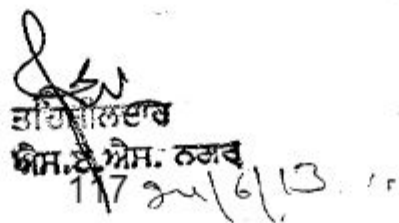 ਤਹਿਸੀਲਦਾਰ
ਐਸ.ਏ.ਐਸ. ਨਗਰ
117 24/6/13